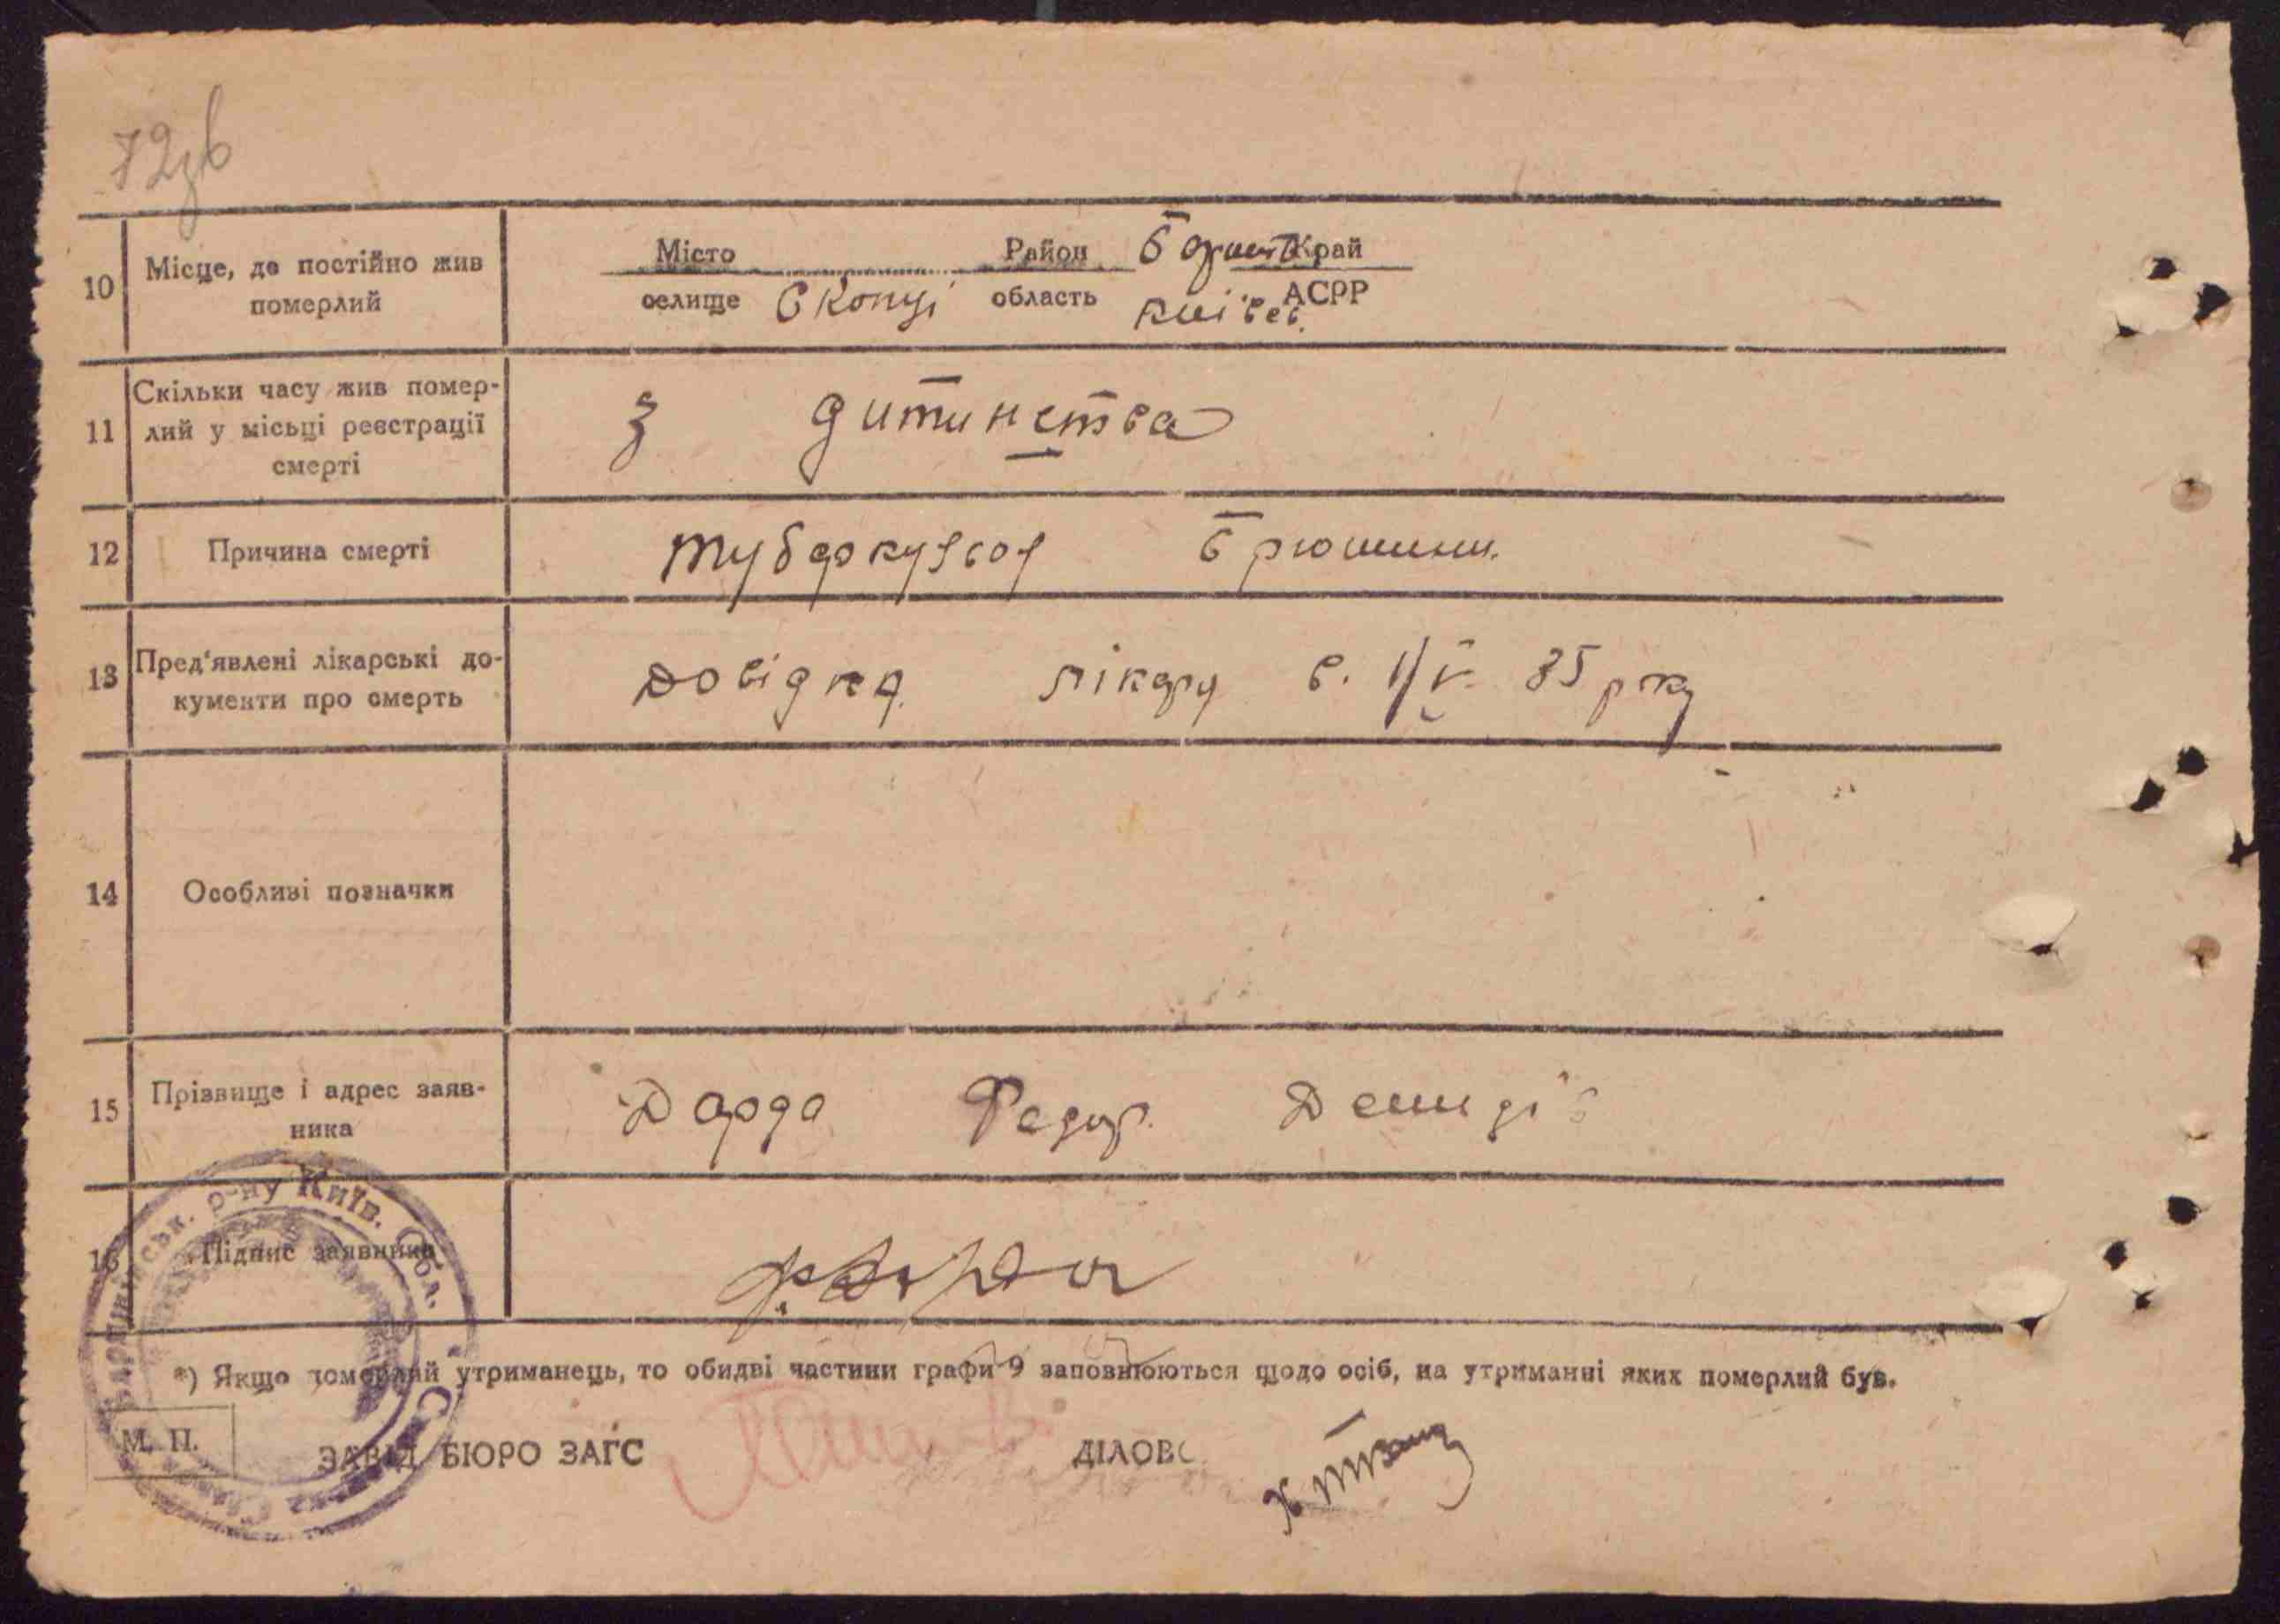 72зв
10 Місце, де постійно жив померлий
Місто Район Бориш Край
селище Скопці область Київс. АСРР
11 Скільки часу жив помер-
лий у місьці реєстрації
смерті
З дитинства
12 Причина смерті
туберкульоз брюшини.
13 Пред'явлені лікарські до-
кументи про смерть
Довідка лікаря в. 1/V. 35 року
14 Особливі позначки
15 Прізвище і адрес заяв-
ника
Дарда Федор. Демидів
16 Підпис заявника
ськ. р-ну Київ. Обл.
*) Якщо померлий утриманець, то обидві частини графи 9 заповнюються щодо осіб, на утриманні яких померлий був.
М. П.
ЗАВІД. БЮРО ЗАГС
ДІЛОВ